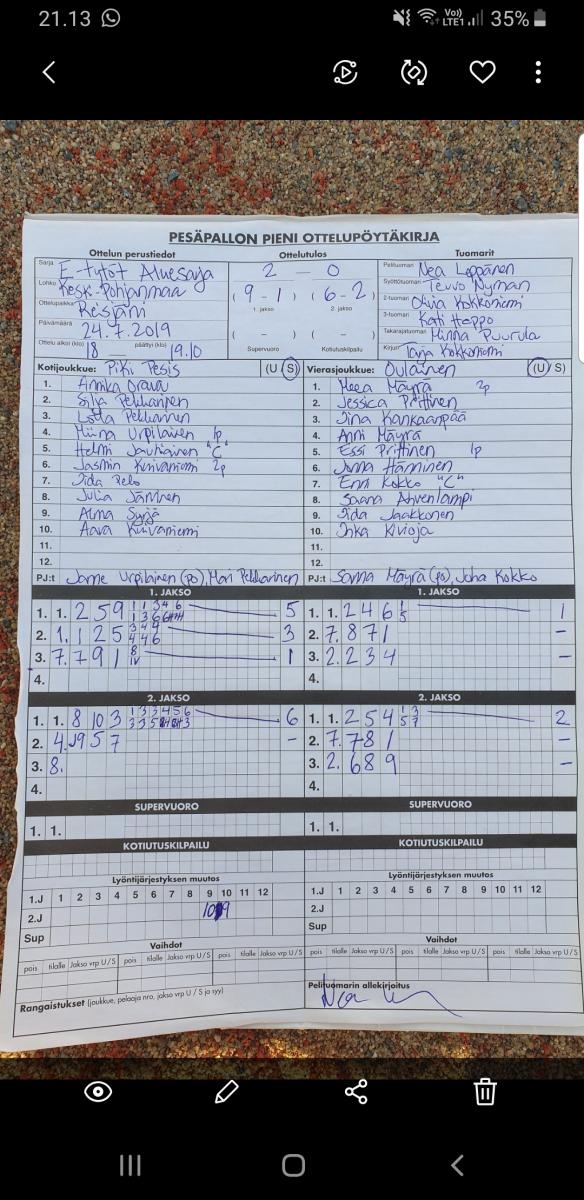 21.13 Vo)) LTE1 35%
PESÄPALLON PIENI OTTELUPÖYTÄKIRJA
Ottelun perustiedot Ottelutulos Tuomarit
Sarja E-tytöt Aluesarja 2 – 0 Pelituomari Nea Leppänen
Lohko Keski-Pohjanmaa (9-1) (6-2) Syöttötuomari Teuvo Nyman
1. jakso 2. jakso
Ottelupaikka 2-tuomari Olivia Kokkoniemi
Päivämäärä 24.7.2019 ( - ) ( - ) 3-tuomari Kati Heppo
Takarajatuomari Minna Puurula
Ottelu alkoi (klo) 18 päättyi (klo) 19.10 Supervuoro Kotiutuskilpailu Kirjuri Tarja Kokkoniemi
Kotijoukkue: Piki Pesis (U S) Vierasjoukkue: Oulainen (U S)
1. Annika Orava 1. Meea Mäyrä 2p
2. Silja Pelkkarinen 2. Jessica Prittinen
3. Lotta Pelkkarinen 3. Iina Kankaanpää
4. Miina Urpilainen 1p 4. Anni Mäyrä
5. Helmi "C" 5. Essi Prittinen 1p
6. Jasmin Kinivaniemi 2p 6. Jonna Hänninen
7. Iida Pelo 7. Enni Kokko "C"
8. Julia Särkinen 8. Saana Ahvenlampi
9. Alma Syrjä 9. Iida Jaakkonen
10. Aava Kinivaniemi 10. Inka Kivioja
11. 11.
12. 12.
PJ:t Janne Urpilainen (po), Mari Pelkkarinen PJ:t Sanna Mäyrä (po), Juha Kokko
1. JAKSO 1. JAKSO
1. 1. 2 5 9 5 1. 1. 2 4 6 1
2. 1. 1 2 5 3 2. 7. 8 7 1 –
3. 7. 7 9 1 1 3. 2. 2 3 4 –
4. 4.
2. JAKSO 2. JAKSO
1. 1. 8 10 3 6 1. 1. 2 5 4 2
2. 4. 9 5 7 – 2. 7. 7 8 1 –
3. 8. 3. 2. 6 8 9 –
4. 4.
SUPERVUORO SUPERVUORO
1. 1. 1. 1.
KOTIUTUSKILPAILU KOTIUTUSKILPAILU
Lyöntijärjestyksen muutos Lyöntijärjestyksen muutos
1.J 1 2 3 4 5 6 7 8 9 10 11 12 1.J 1 2 3 4 5 6 7 8 9 10 11 12
2.J 10 9 2.J
Sup Sup
Vaihdot Vaihdot
pois tilalle Jakso vrp U/S pois tilalle Jakso vrp U/S pois tilalle Jakso vrp U/S pois tilalle Jakso vrp U/S pois tilalle Jakso vrp U/S pois tilalle Jakso vrp U/S
Rangaistukset (joukkue, pelaaja nro, jakso vrp U / S ja syy) Pelituomarin allekirjoitus